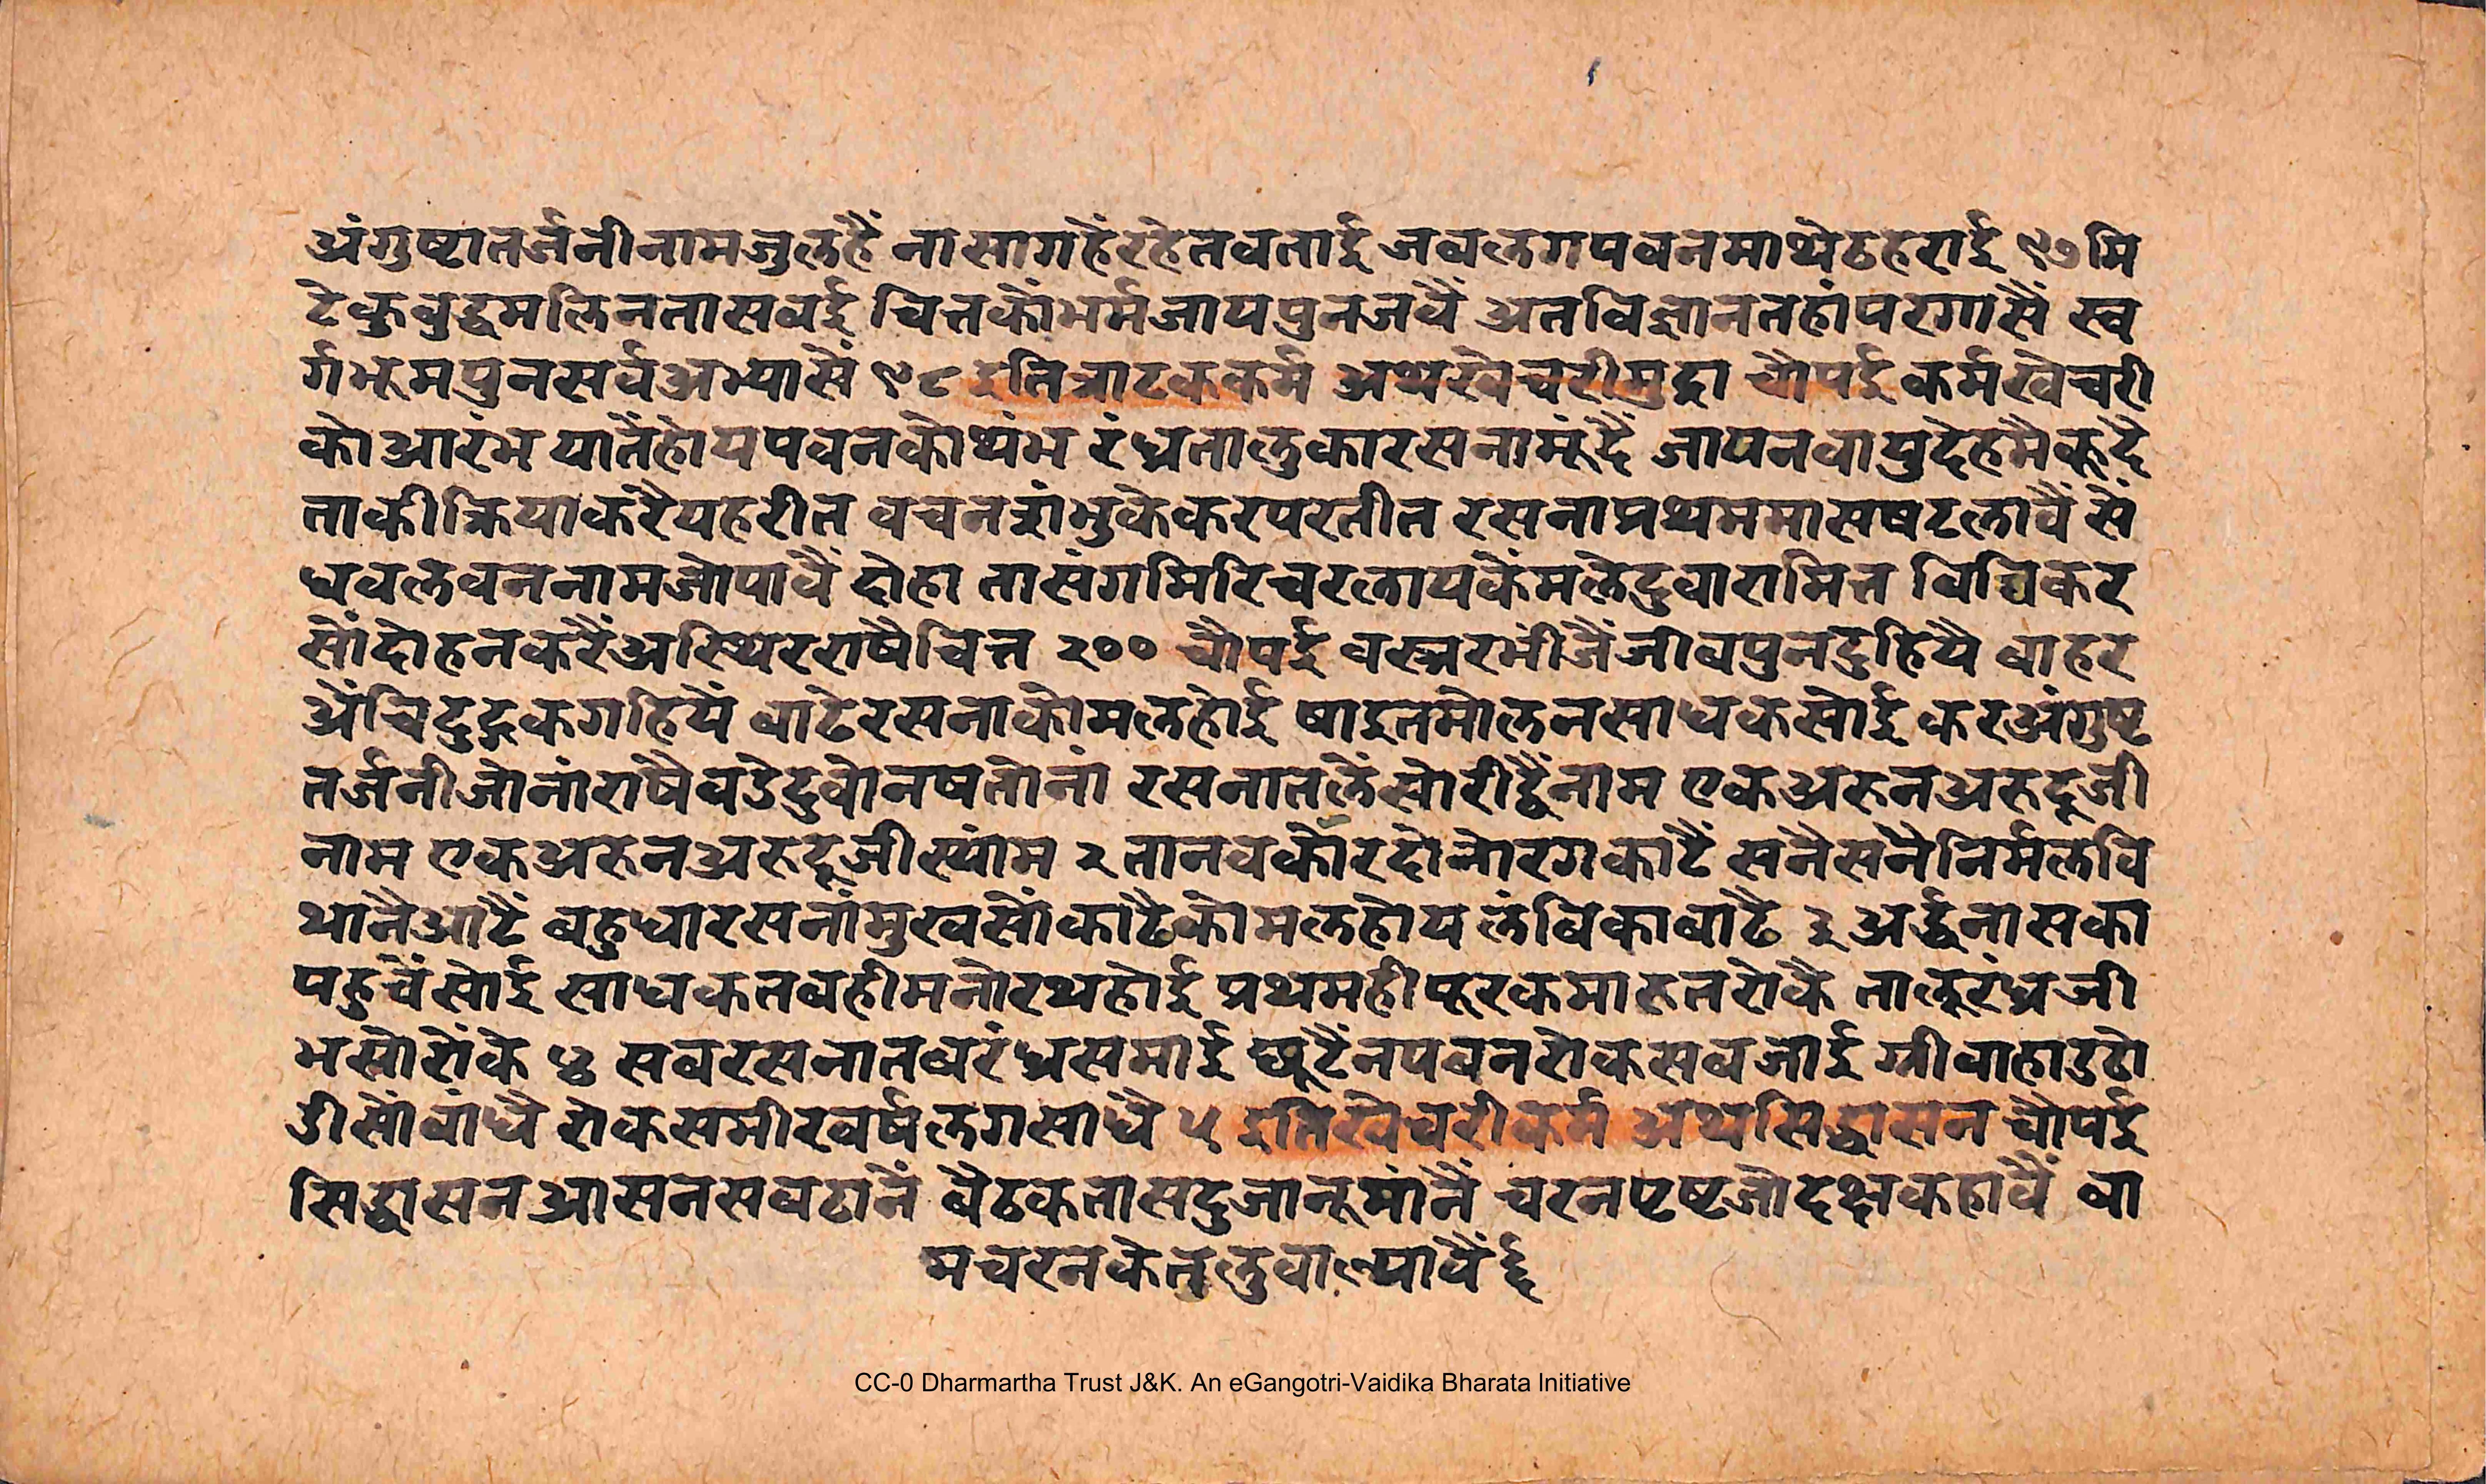 अंगुष्टातर्जनीनामजुलहैं नासागहैंरहेतवताई जवलगपवनमाथेठहराई ९७ मि
टेकुवुद्धमलिनतासवई चित्तकोंभर्मजायपुनजवैं अतविज्ञानतहांपरगासैं स्व
र्गभूमपुनसर्वअभ्यासैं ९८ इतित्राटककर्म अथखेचरीमुद्रा चौपई कर्मखेचरी
कोआरंभ यातैंहोयपवनकोथंभ रंध्रतालुकारसनामूंदैं जापनवापुदेहमैकूदै
ताकीक्रियाकरैयहरीत वचनशंभुकेकरपरतीत रसनाप्रथममासषटलावैं सैं
धवलवननामजोपावैं दोहा तासंगमिरिचरलायकेंमलेदुवारामित्त विविकर
सोंदोहनकरैंअस्थिरराषैचित्त २०० चौपई वस्त्ररभींजैंजीवपुनदुहियै वाहर
अैंचिदुद्धकगहियें वाटेरसनाकोमलहोई षाइतमोलनसाधकसोई करअंगुष्ट
तर्जनीजोनांराषैवडेदुवोनषतोनां रसनातलैंसोरीद्वैंनाम एकअरुनअरुदूजी
नाम एकअरुनअरुदूजीस्यांम २ तानवकोरदोनोरगकाटैं सनैसनैनिर्मलवि
थानैआटैं बहुधारसनांमुखसोंकाढैकोमलहोय लंविकावाढै ३ अर्द्धनासका
पहुचैंसोई साधकतवहीमनोरथहोई प्रथमहीपूरकमारुतरोकै तालूरंध्रजी
भसोरोंके ४ सवरसनातबरंध्रसमाई छूटैंनपवनरोकसवजाई ग्रीवाहाडठो
डीसोंवांधै रोकसमीरवर्षलगसाधै ५ इतिखेचरीकर्म अथसिद्धासन चौपई
सिद्धासनआसनसवठानैं वैठकतासदुजानूमांनैं चरनपृष्टजोदक्षकहावैं वा
मचरनकेतलुवाल्यावैंई
CC-0 Dharmartha Trust J&K. An eGangotri-Vaidika Bharata Initiative